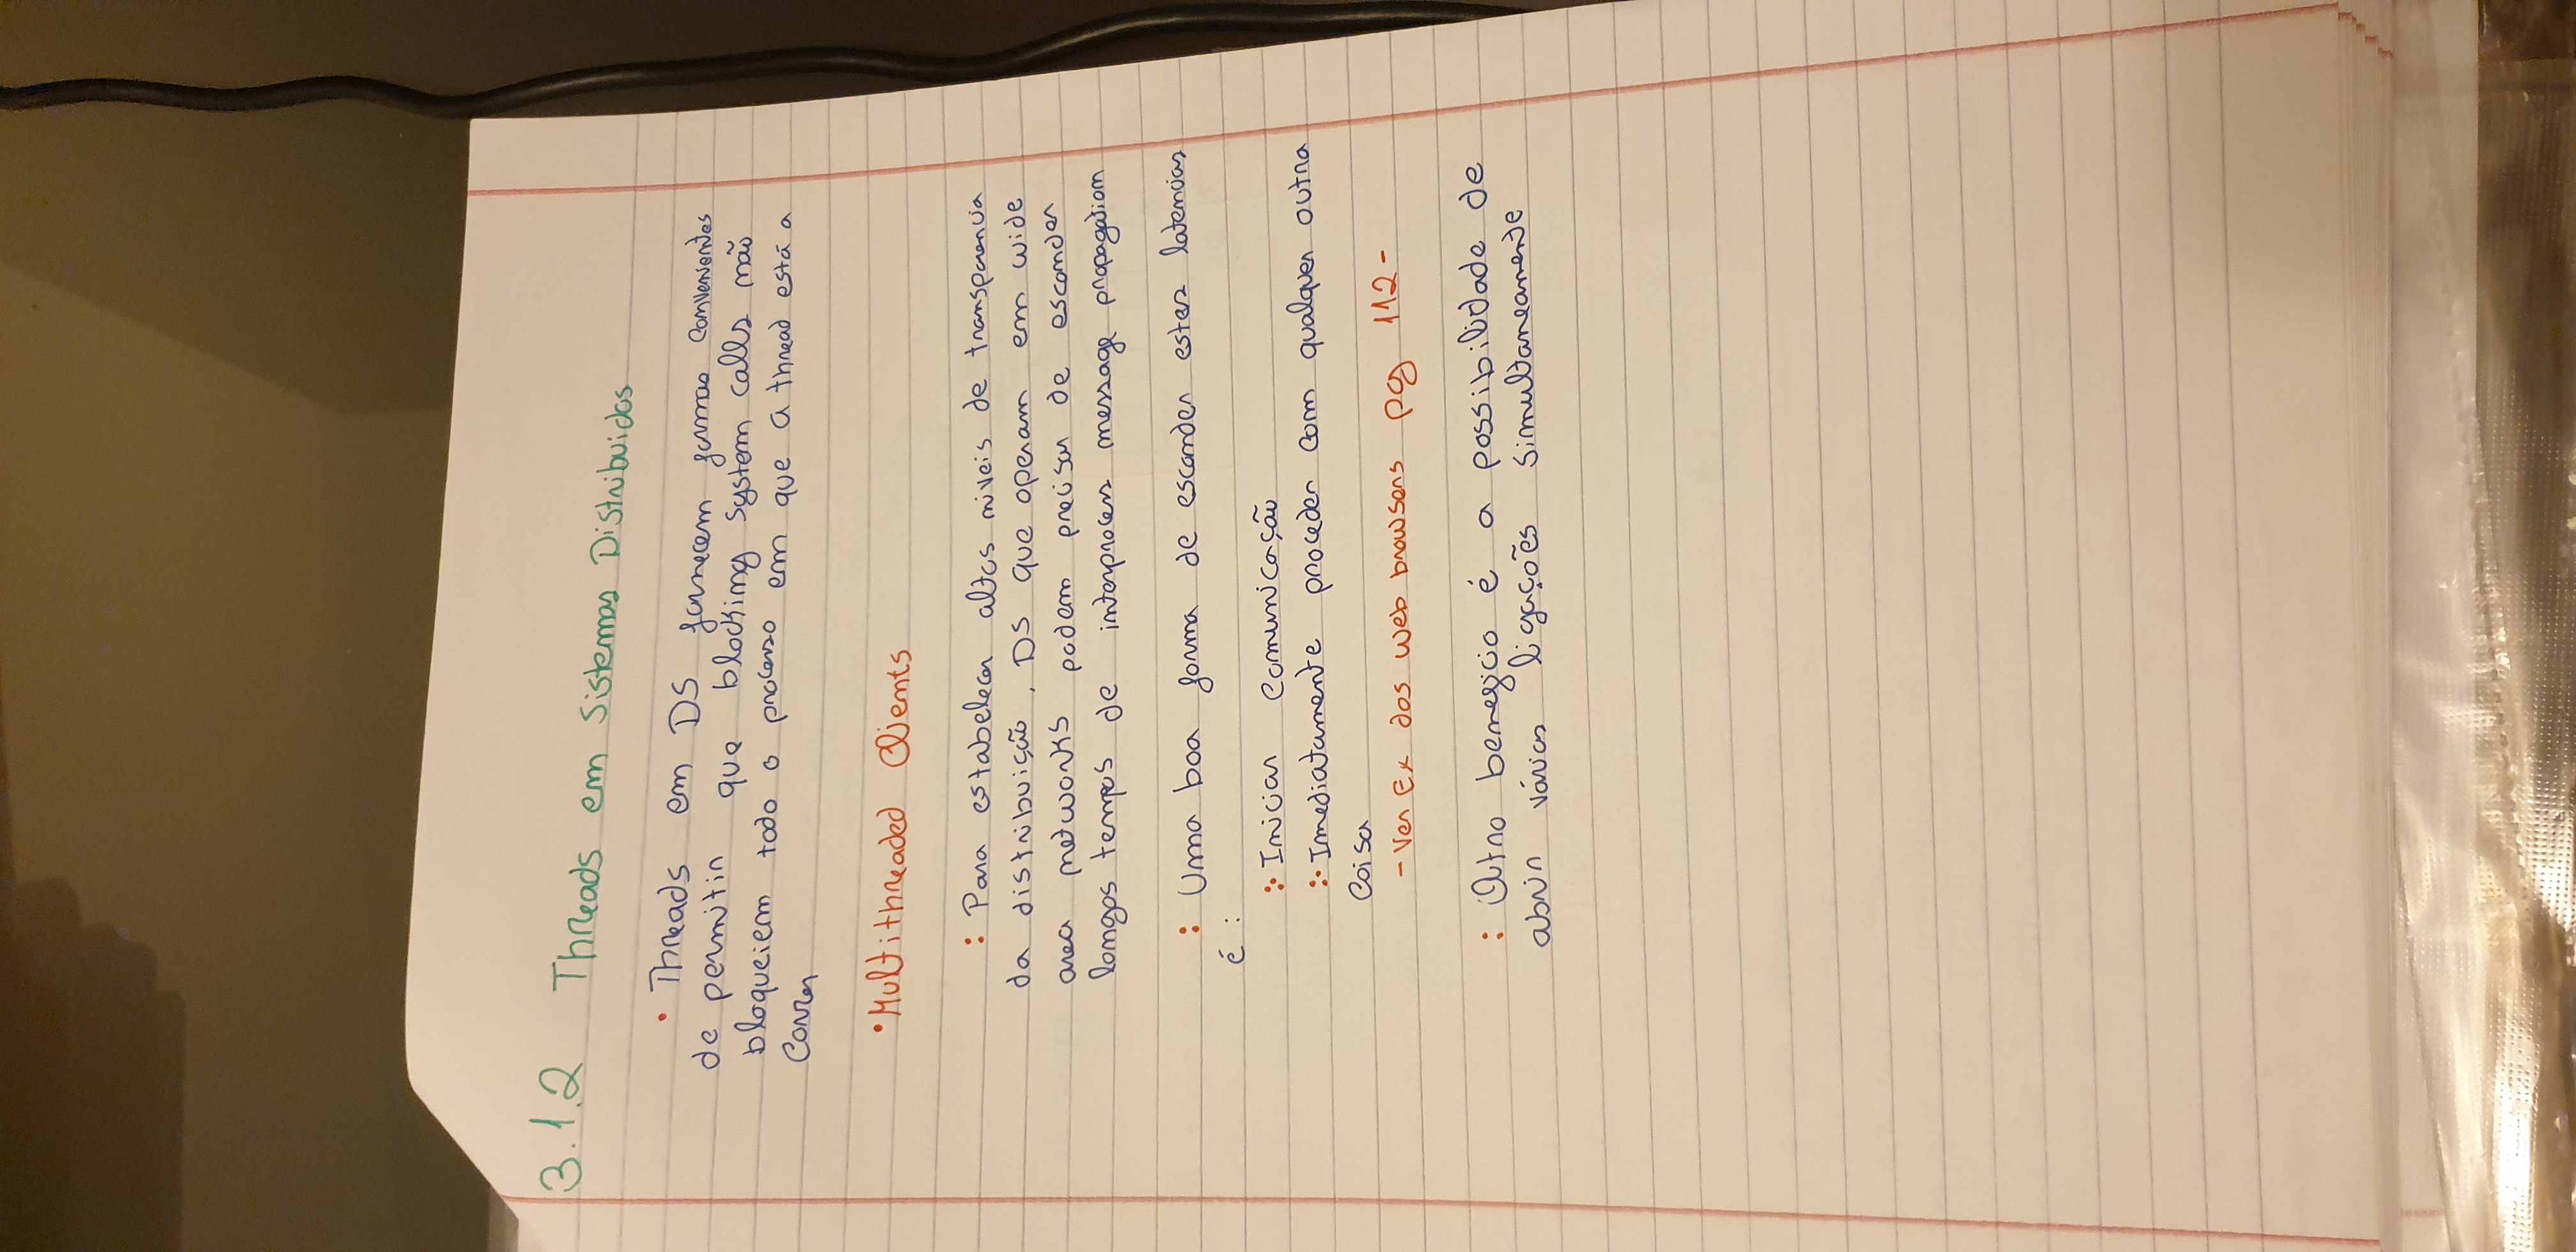 3.1.2 Threads em Sistemas Distribuidos
• Threads em DS fornecem formas convenientes
de permitir que blocking system calls não
bloqueiem todo o processo em que a thread está a
correr
• Multithreaded Clients
: Para estabelecer altos niveis de transparencia
da distribuição, DS que operam em wide
area networks podem precisar de esconder
longos tempos de interprocess message propagation
: Uma boa forma de esconder estes latencias
é :
:· Iniciar comunicação
:· Imediatamente proceder com qualquer outra
coisa
- Ver Ex dos web browsers pg 112 -
: Outro beneficio é a possibilidade de
abrir várias ligações simultaneamente